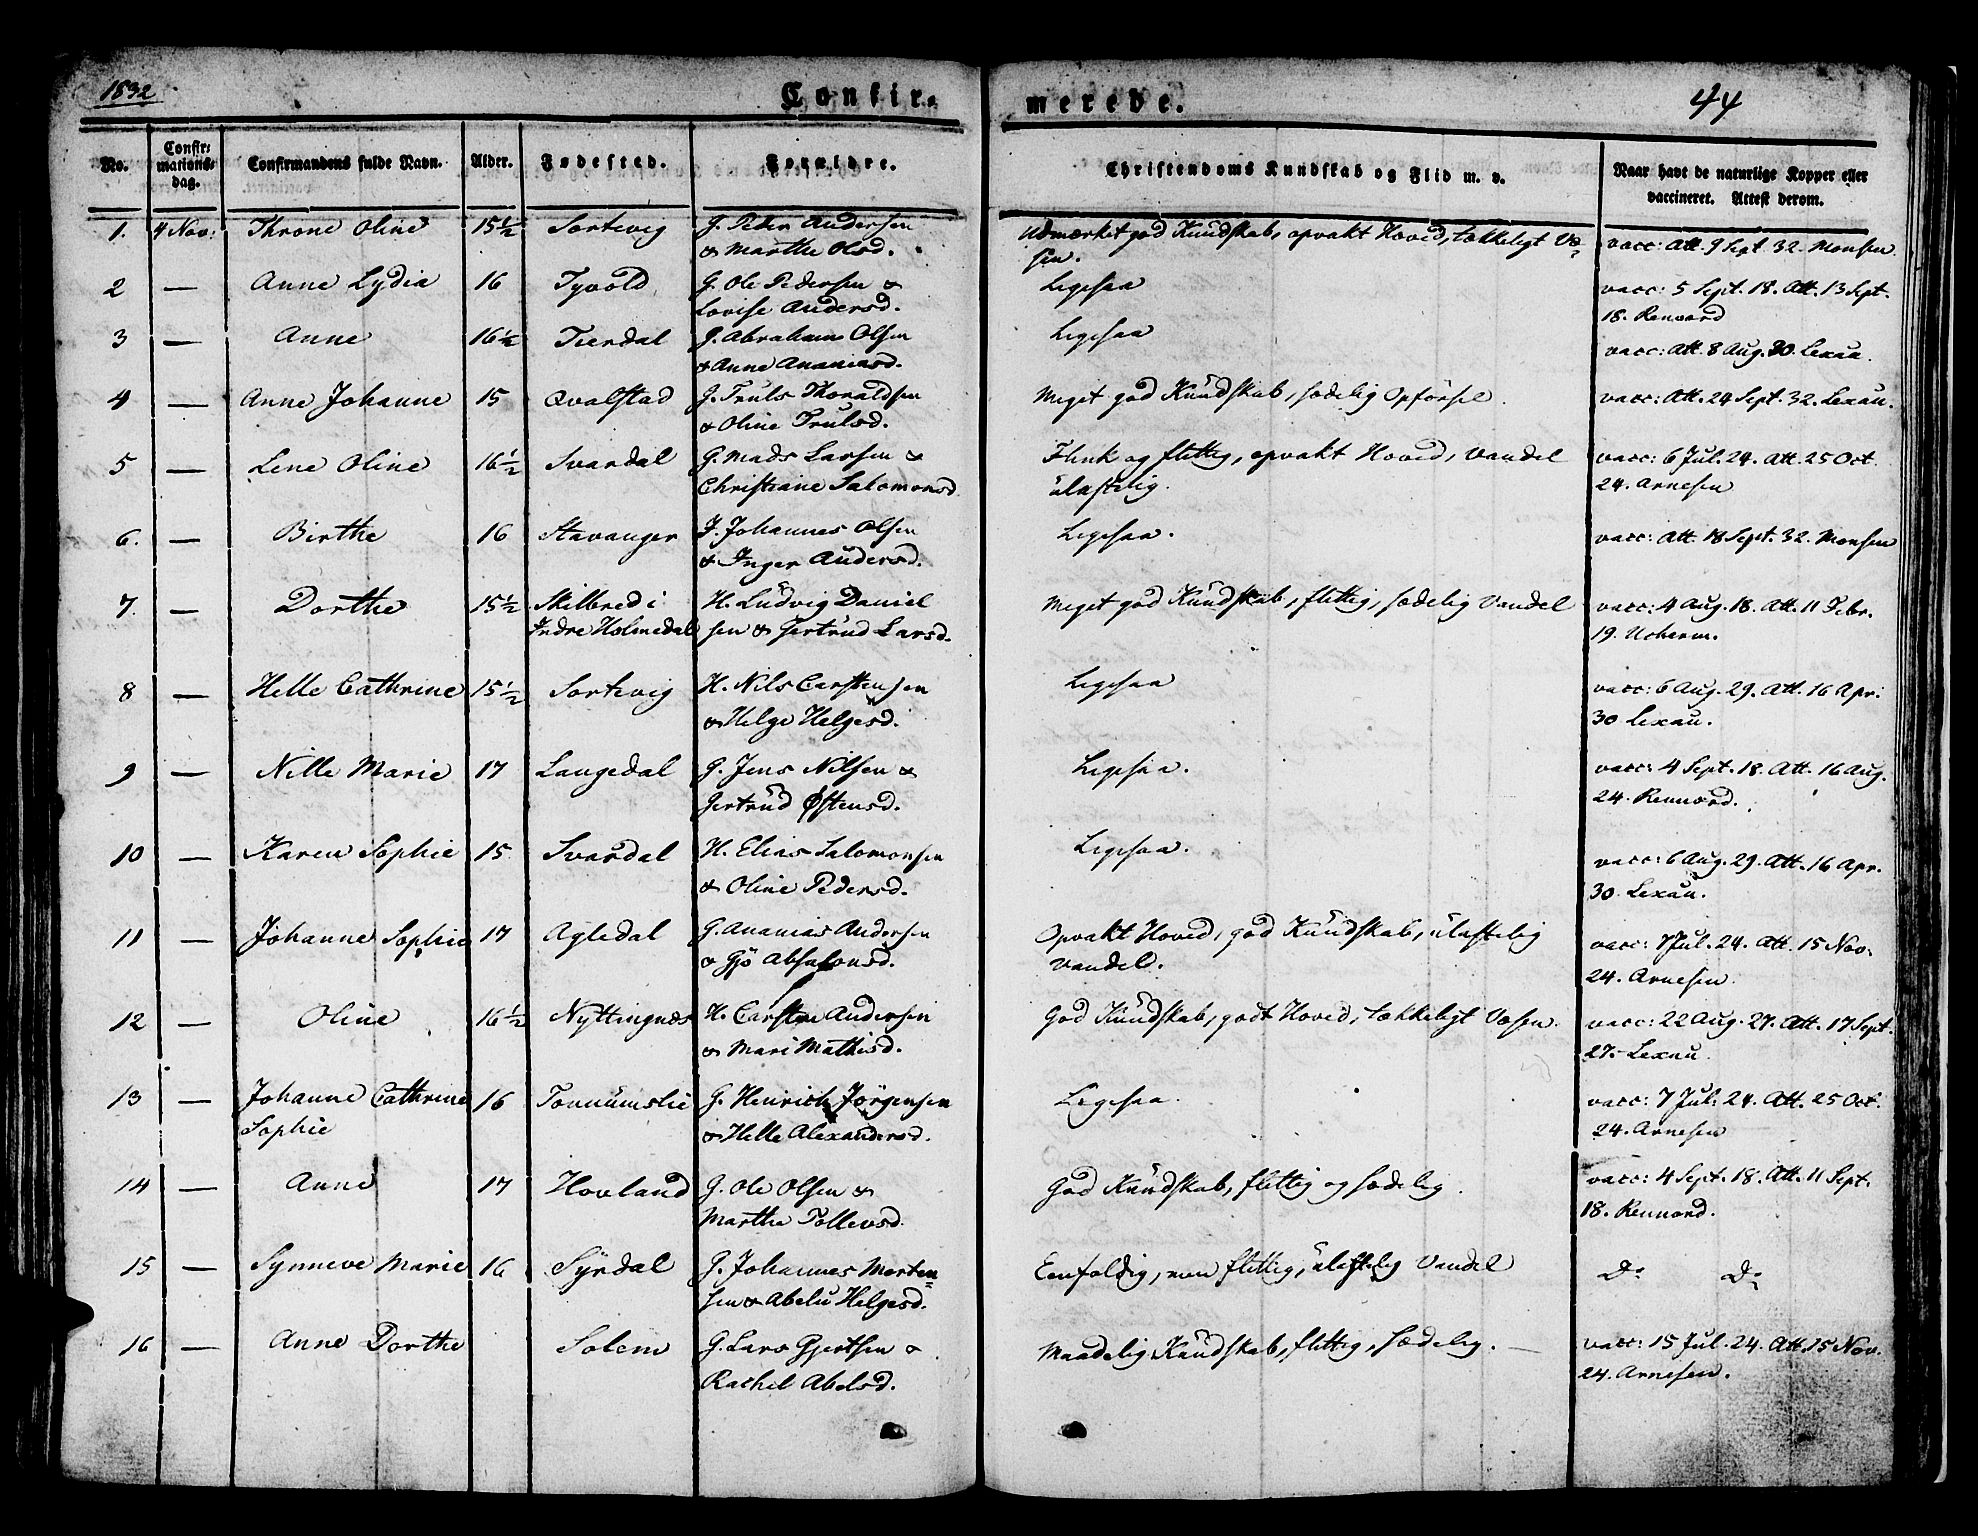 1832 Confir- merede. 44
No. Confir- mations- dag. Confirmandens fulde Navn. Alder. Fødested. Forældre. Christendoms Kundskab og Flid m. v. Naar havt de naturlige Kopper eller vaccineret. Attest derom.
1. 4 Nov: Throne Oline 15½ Sortevig G. Peder Andersen Udmærket god Kundskab, opvakt Hoved, tækkeligt Væ- vacc: Att. 9 Sept. 32. Monsen
& Marthe Olsd. sen.
2 — Anne Lydia 16 Tyvold G. Ole Pedersen & Ligesaa vacc: 5 Sept. 18. Att. 13 Sept.
Lovise Andersd. 18. Rennord
3 — Anne 16½ Teerdal G. Abraham Olsen Ligesaa vacc: Att. 8 Aug. 30. Lexau.
& Anne Ananiasd.
4 — Anne Johanne 15 Qvalstad G. Truls Thoraldsen Meget god Kundskab, sædelig Opførsel. vacc: Att. 24 Sept. 32. Lexau.
& Oline Trulsd.
5 — Lene Oline 16½ Svardal G. Mads Larsen & Flink og flittig, opvakt Hoved, Vandel vacc: 6 Jul. 24. Att. 25 Oct.
Christiane Salomonsd. ulastelig. 24. Arnesen
6. — Birthe 16 Stavanger J. Johannes Olsen Ligesaa. vacc: Att. 18 Sept. 32. Monsen
& Inger Andersd.
7. — Dorthe 15½ Skilbred i H. Ludvig Daniel Meget god Kundskab, flittig, sædelig Vandel vacc: 4 Aug. 18. Att. 11 Febr.
Indre Holmedal sen & Gertrud Larsd. 19. Ucherm.
8 — Helle Cathrine 15½ Sortevig H. Nils Carstensen Ligesaa vacc: 6 Aug. 29. Att. 16 Apr:
& Helge Helgesd. 30. Lexau.
9 — Nille Marie 17 Langedal G. Jens Nilsen & Ligesaa. vacc: 4 Sept. 18. Att. 16 Aug.
Gertrud Østensd. 24. Rennord.
10 — Karen Sophie 15 Svardal H. Elias Salomonsen Ligesaa. vacc: 6 Aug. 29. Att. 16 Apr.
& Oline Pedersd. 30. Lexau.
11 — Johanne Sophie 17 Agledal G. Ananias Andersen Opvakt Hoved, god Kundskab, ulastelig vacc: 7 Jul. 24. Att. 15 Nov.
& Gjø Absalonsd. Vandel. 24. Arnesen
12 — Oline 16½ Nyttingnæs H. Carsten Andersen God Kundskab, godt Hoved, tækkeligt Væsen. vacc: 22 Aug. 27. Att. 17 Sept.
& Mari Mathisd. 27. Lexau.
13 — Johanne Cathrine 16 Tonnumslie G. Henrich Jørgensen Ligesaa. vacc: 7 Jul: 24. Att. 25 Oct.
Sophie & Helle Alexandersd. 24. Arnesen
14 — Anne 17 Hovland G. Ole Olsen & God Kundskab, flittig og sædelig. vacc: 4 Sept. 18. Att. 11 Sept.
Marthe Tollevsd. 18. Rennord.
15 — Synneve Marie 16 Syrdal G. Johannes Morten= Eenfoldig, men flittig, ulastelig Vandel Do Do
sen & Abelu Helgesd.
16 — Anne Dorthe Solem G. Lars Gjertsen & Maadelig Kundskab, flittig, sædelig. — vacc: 15 Jul. 24. Att. 15 Nov.
Rachel Abelsd. 24. Arnesen.